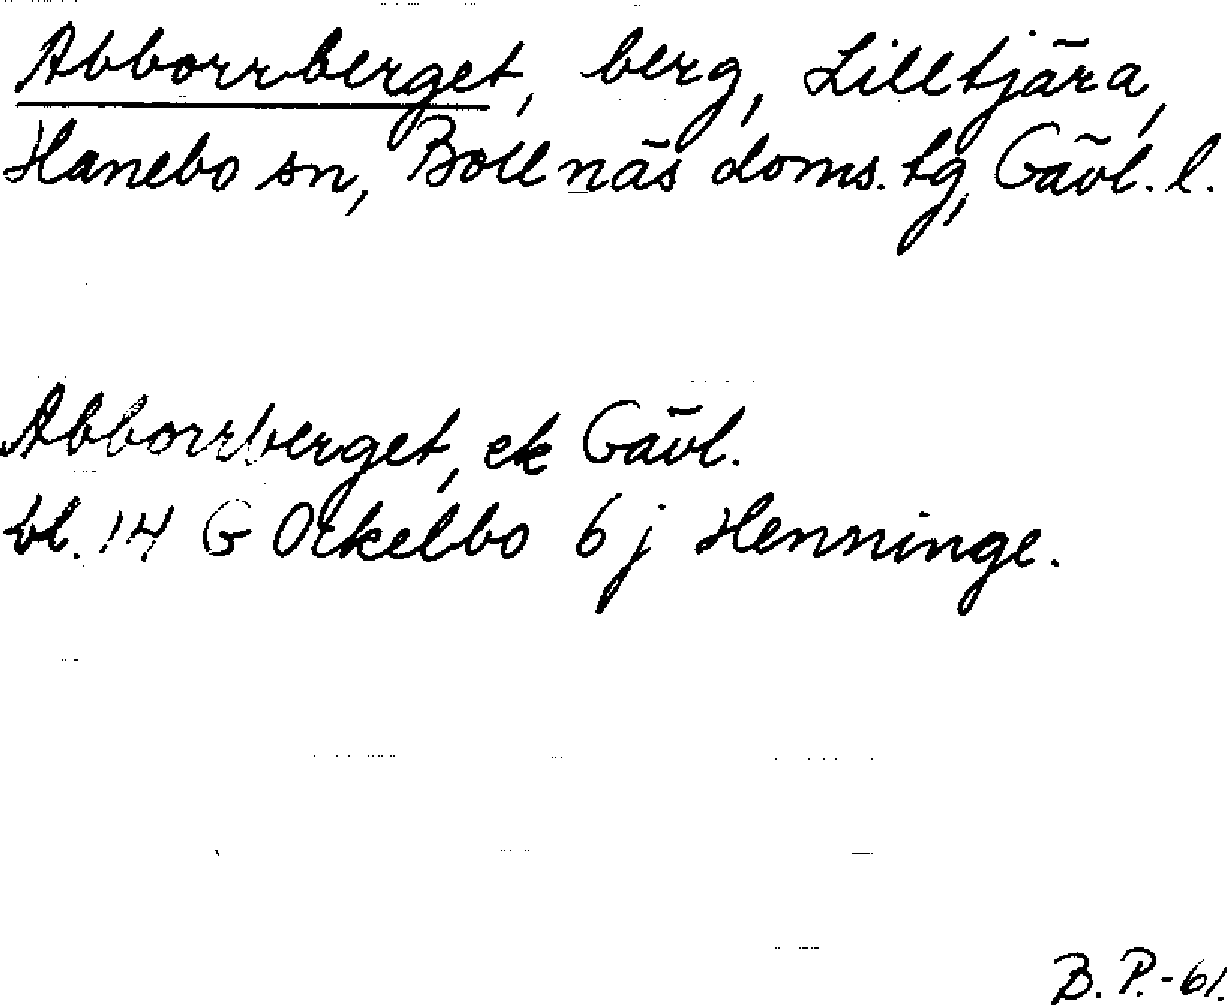 Abborrberget, berg, Lilltjära,
Hanebo sn, Bollnäs doms. tg, Gävl. l.
Abborrberget, ek Gävl.
bl. 14 G Ockelbo 6 j Henninge.
B. P. - 61.